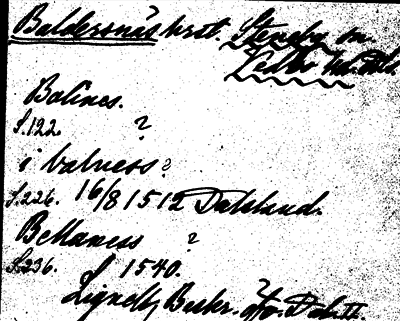 Baldersnäs hrst. Steneby sn.
Vedbo hd. Dls.
Balines.
S.122 ?
i balness ?
S.226. 16/8 1512 Dalslund.
Bettaness ?
S.236. f 1540.
Lignell, Beskr.